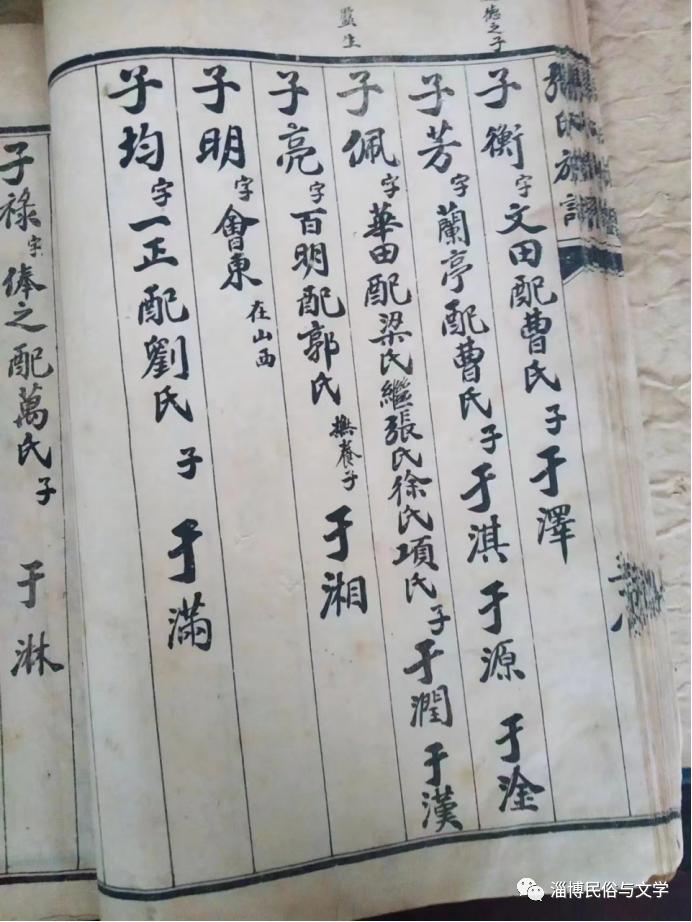 德之子
監生
張氏族譜
子衡字文田配曹氏子于澤
子芳字蘭亭配曹氏子于淇于源于淦
子佩字華田配梁氏繼張氏徐氏項氏子于潤于漢
子亮字百明配郭氏撫養子于湘
子明字會東在山西
子均字一正配劉氏子于滿
子祿字俸之配萬氏子于淋
淄博民俗与文学